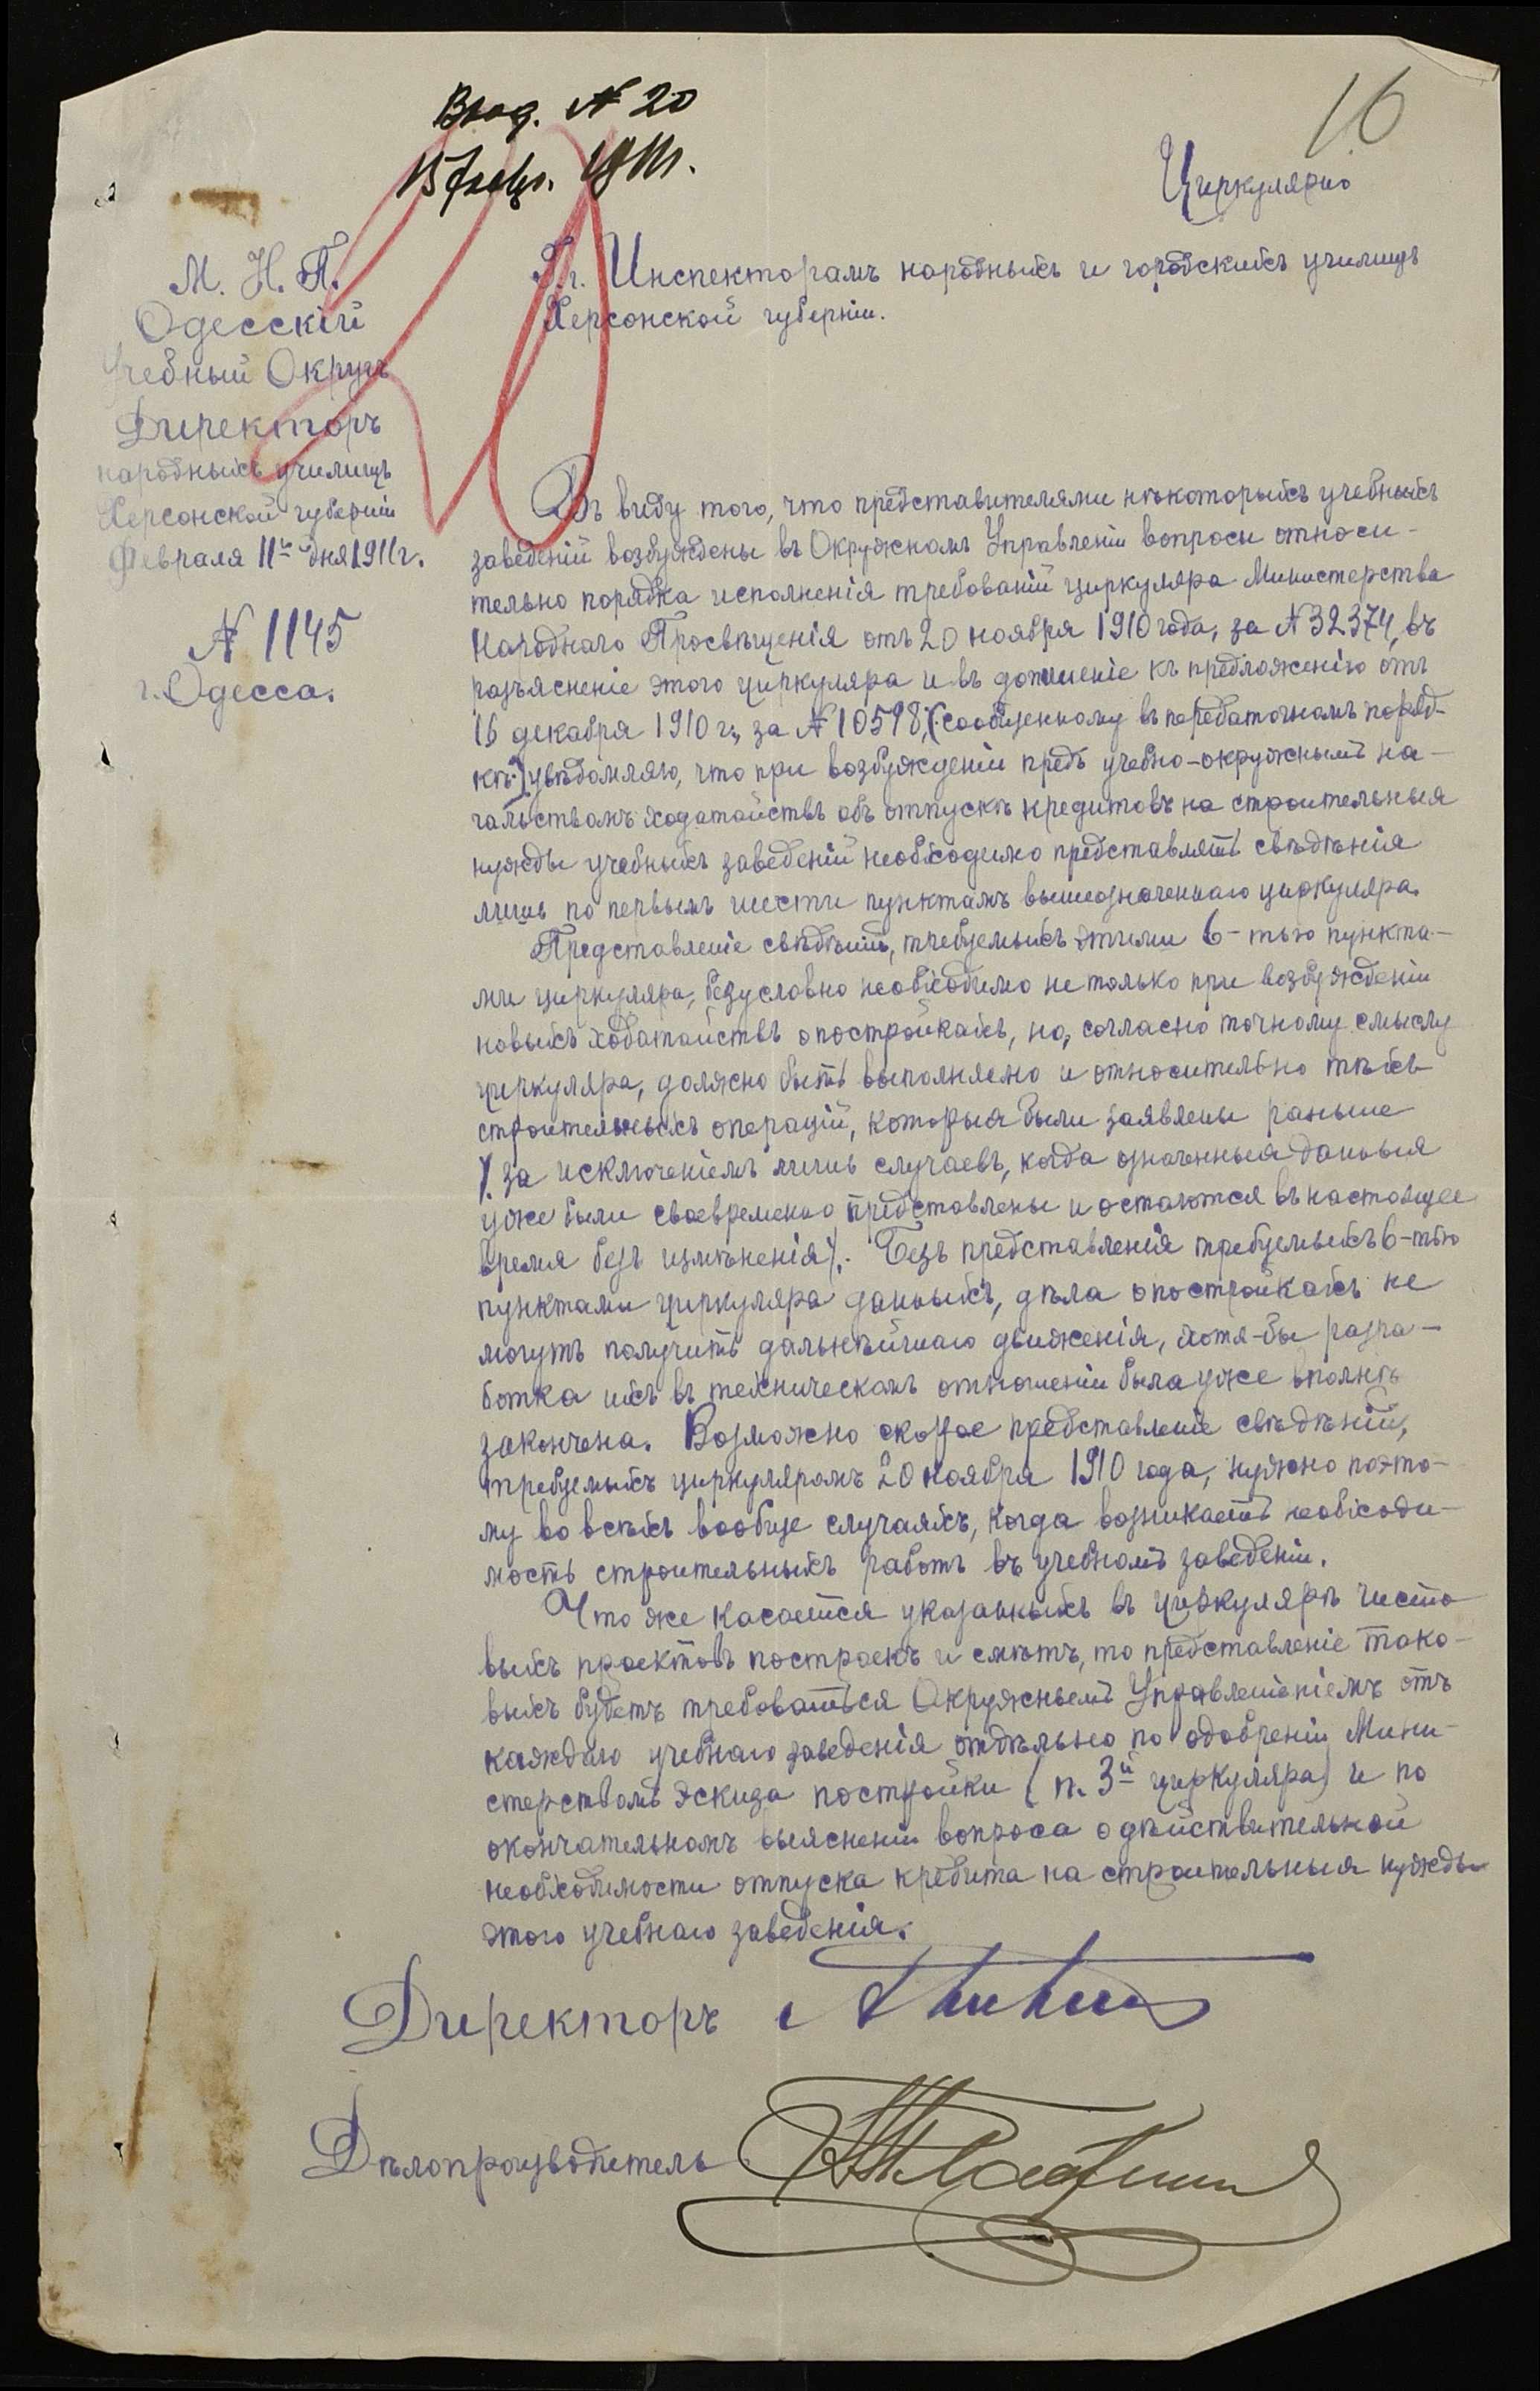 Вход. № 20
15 февр. 1911 г.
16
Циркулярно
М. Н. П.
Одесскій
Учебный Округъ
Директоръ
народныхъ училищъ
Херсонской губерніи
Февраля 11го дня 1911 г.
№ 1145
г. Одесса.
Г.г. Инспекторамъ народныхъ и городскихъ училищъ
Херсонской губерніи.
Въ виду того, что представителями нѣкоторыхъ учебныхъ
заведеній возбуждены въ Окружномъ Управленіи вопросы относи-
тельно порядка исполненія требованій циркуляра Министерства
Народнаго Просвѣщенія отъ 20 ноября 1910 года, за № 32374, въ
разъясненіе этого циркуляра и въ дополненіе къ предложенію отъ
16 декабря 1910 г., за № 10598, (сообщенному въ передаточномъ поряд-
кѣ) увѣдомляю, что при возбужденіи предъ учебно-окружнымъ на-
чальствомъ ходатайствъ объ отпускѣ кредитовъ на строительныя
нужды учебныхъ заведеній необходимо представлять свѣдѣнія
лишь по первымъ шести пунктамъ вышеозначеннаго циркуляра.
Представленіе свѣдѣній, требуемыхъ этими 6-тью пункта-
ми циркуляра, безусловно необходимо не только при возбужденіи
новыхъ ходатайствъ о постройкахъ, но, согласно точному смыслу
циркуляра, должно быть выполняемо и относительно тѣхъ
строительныхъ операцій, которыя были заявлены раньше
/. за исключеніемъ лишь случаевъ, когда означенныя данныя
уже были своевременно представлены и остаются въ настоящее
время безъ измѣненія /. Безъ представленія требуемыхъ 6-тью
пунктами циркуляра данныхъ, дѣла о постройкахъ не
могутъ получить дальнѣйшаго движенія, хотя-бы разра-
ботка ихъ въ техническомъ отношеніи была уже вполнѣ
закончена. Возможно скорое представленіе свѣдѣній,
требуемыхъ циркуляромъ 20 ноября 1910 года, нужно поэто-
му во всѣхъ вообще случаяхъ, когда возникаетъ необходи-
мость строительныхъ работъ въ учебномъ заведеніи.
Что же касается указанныхъ въ циркулярѣ чисто
выхъ проектовъ построекъ и смѣтъ, то представленіе тако-
выхъ будетъ требоваться Окружнымъ Управленіемъ отъ
каждаго учебнаго заведенія отдѣльно по одобреніи Мини-
стерствомъ эскиза постройки (п. 3й циркуляра) и по
окончательномъ выясненіи вопроса о дѣйствительной
необходимости отпуска кредита на строительныя нужды
этого учебнаго заведенія.
Директоръ
Дѣлопроизводитель